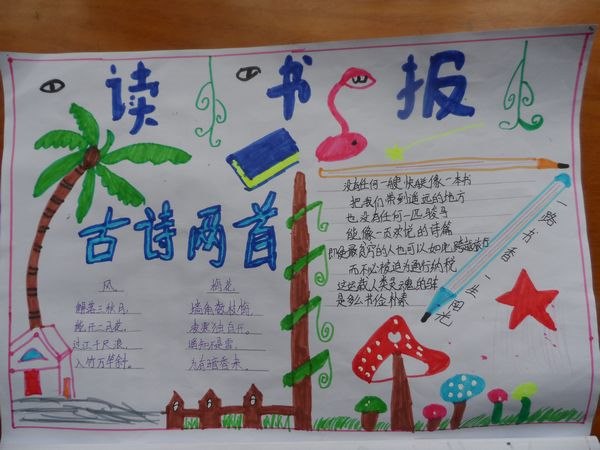 读书报
古诗两首
风。
解落三秋叶,
能开二月花,
过江千尺浪,
入竹万竿斜。
梅花
墙角数枝梅,
凌寒独自开。
遥知不是雪,
为有暗香来。
没有任何一艘快艇像一本书
把我们带到遥远的地方
也没有任何一匹骏马
能像一页欢悦的诗篇
即使最贫穷的人也可以如此跨越
而不必被迫为通行纳税
这运载人类灵魂的
是多么节俭朴素
一路书香一生阳光